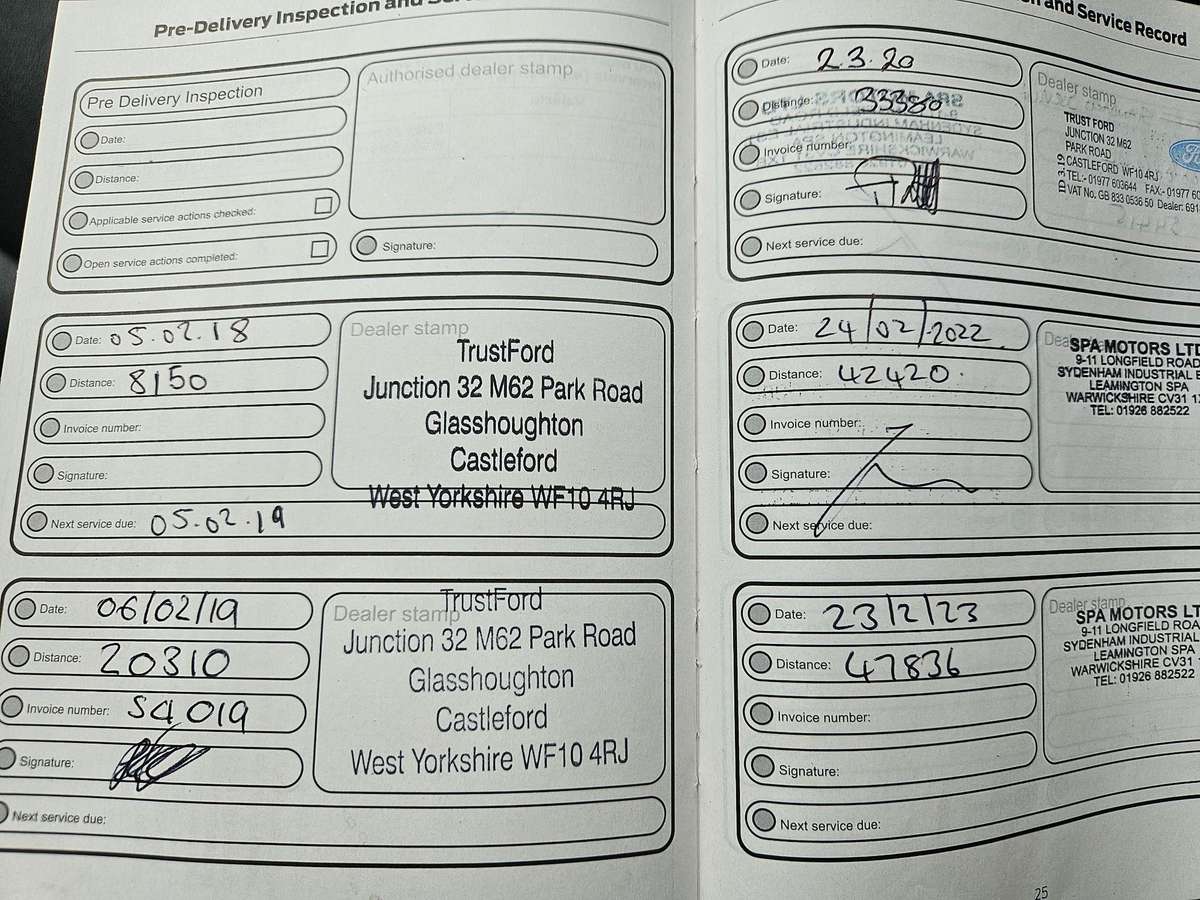 Pre-Delivery Inspection and
Pre Delivery Inspection
Date:
Distance:
Applicable service actions checked:
Open service actions completed:
Authorised dealer stamp
Signature:
Date: 05.02.18
Distance: 8150
Invoice number:
Signature:
Next service due: 05.02.19
Dealer stamp
TrustFord
Junction 32 M62 Park Road
Glasshoughton
Castleford
West Yorkshire WF10 4RJ
Date: 06/02/19
Distance: 20310
Invoice number: S4019
Signature:
Next service due:
Dealer stamp
TrustFord
Junction 32 M62 Park Road
Glasshoughton
Castleford
West Yorkshire WF10 4RJ
and Service Record
Date: 2.3.20
Distance: 33380
Invoice number:
Signature:
Next service due:
Dealer stamp
TRUST FORD
JUNCTION 32 M62
PARK ROAD
CASTLEFORD WF10 4RJ
TEL:- 01977 603644 FAX:- 01977 60
VAT No. GB 833 0536 50 Dealer: 691
Date: 24/02/2022
Distance: 42420
Invoice number:
Signature:
Next service due:
SPA MOTORS LTD
9-11 LONGFIELD ROAD
SYDENHAM INDUSTRIAL E
LEAMINGTON SPA
WARWICKSHIRE CV31 1
TEL: 01926 882522
Date: 23/2/23
Distance: 47836
Invoice number:
Signature:
Next service due:
Dealer stamp
SPA MOTORS LT
9-11 LONGFIELD ROA
SYDENHAM INDUSTRIAL
LEAMINGTON SPA
WARWICKSHIRE CV31
TEL: 01926 882522
25